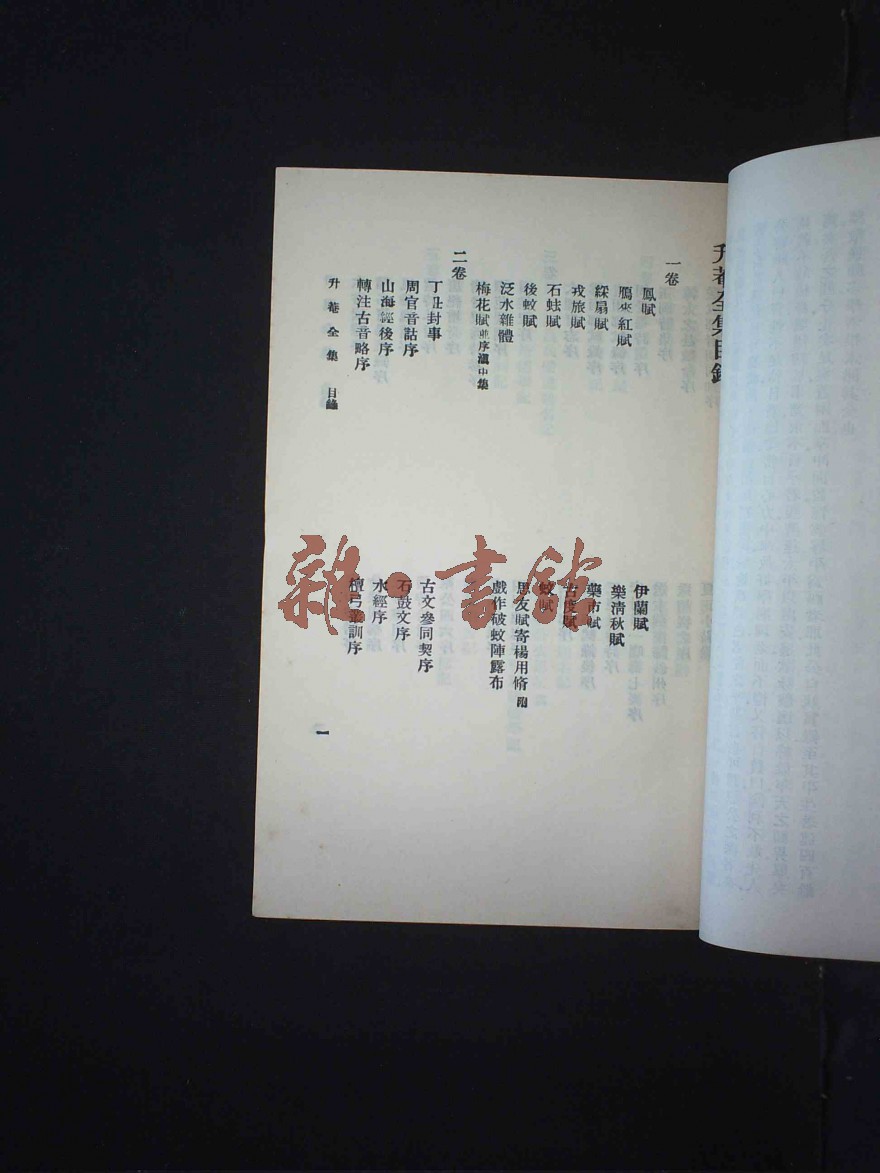 升菴全集目錄
一卷
鳳賦
伊蘭賦
鴈來紅賦
樂清秋賦
綵扇賦
藥市賦
戎旅賦
古度賦
石蛣賦
蚊賦
後蚊賦
思友賦寄楊用脩 附
泛水雜體
戲作破蚊陣露布
梅花賦並序滇中集
二卷
丁丑封事
周官音詁序
古文參同契序
山海經後序
石鼓文序
轉注古音略序
水經序
檀弓叢訓序
升菴全集 目錄
一
雜·書館